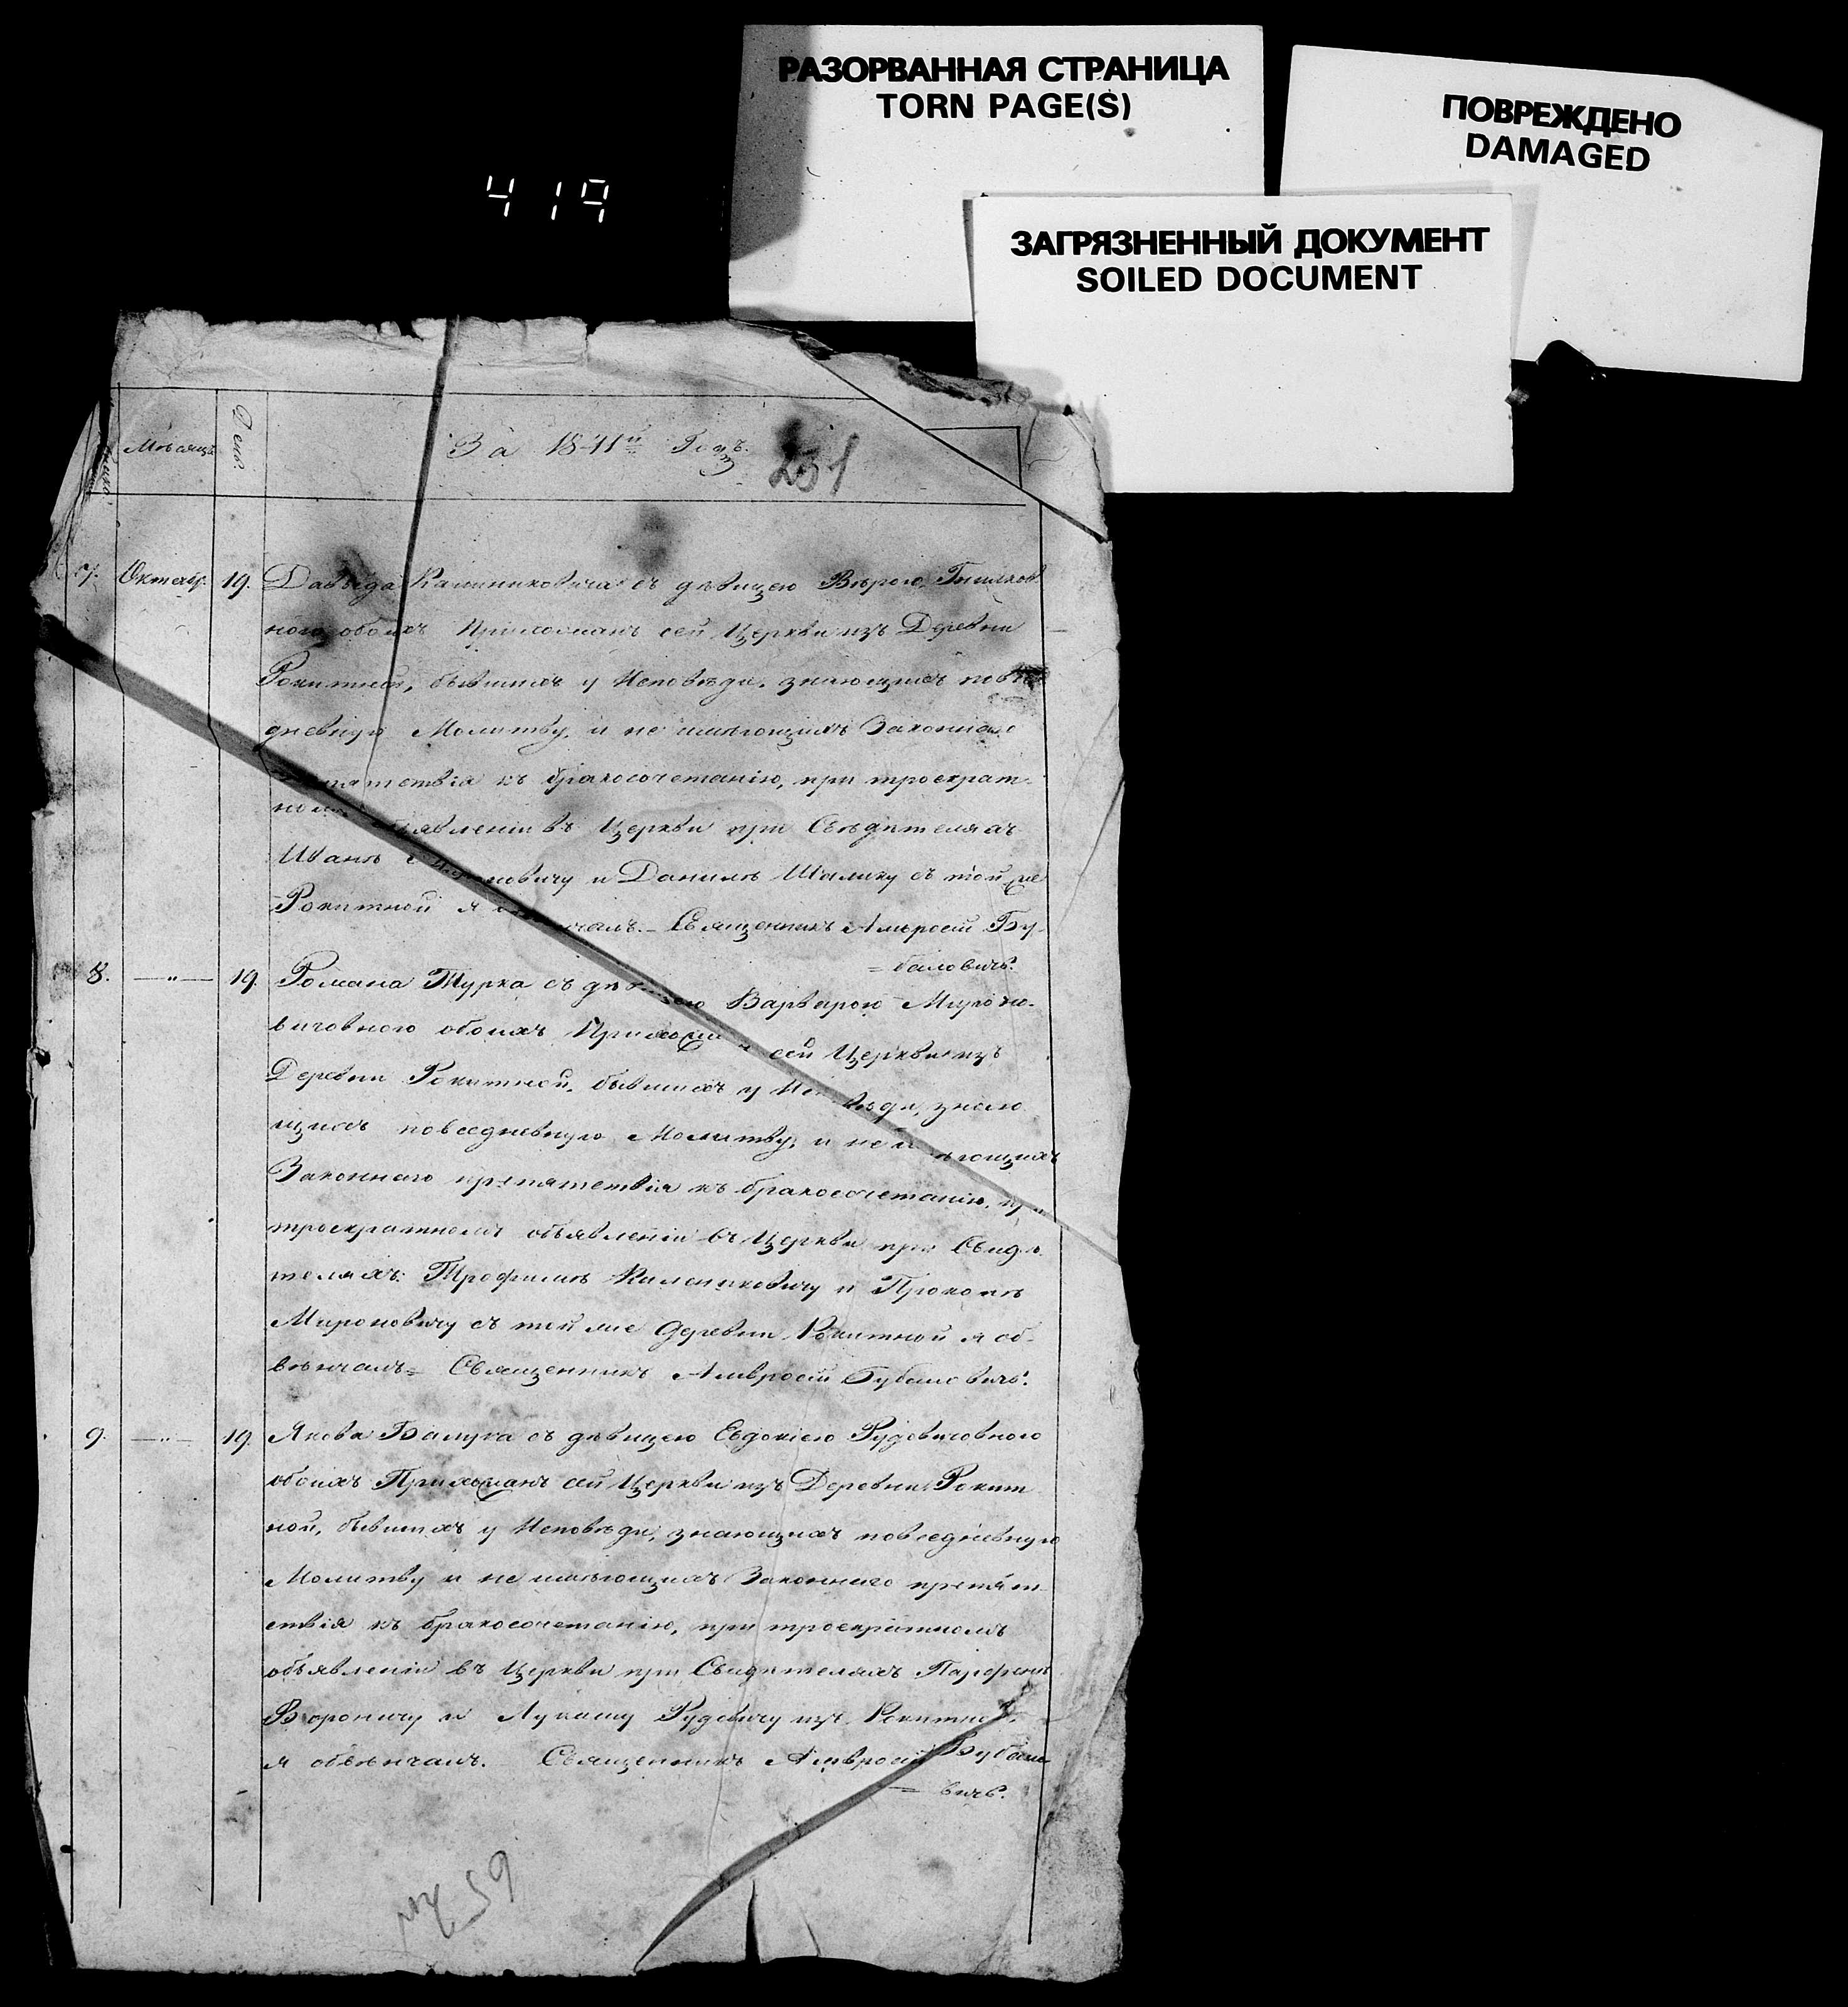 РАЗОРВАННАЯ СТРАНИЦА
TORN PAGE(S)
ПОВРЕЖДЕНО
DAMAGED
ЗАГРЯЗНЕННЫЙ ДОКУМЕНТ
SOILED DOCUMENT
419
Мѣсяцъ
День.
За 1841й Годъ.
251
7. Октябр. 19. Давыда съ дѣвицею Вѣрою
ною обоихъ Прихожанъ сей Церкви изъ Деревни
Рокитной, бывшихъ у Исповѣди, знающихъ
дневную Молитву, и не имѣющихъ Законнаго
къ бракосочетанію, при троекрат-
въ Церкви при Свѣдителяхъ
Иванѣ и Данилѣ Шалику съ той же
Рокитной я Священникъ Амвросій Бу-
=баловичъ.
8. —"— 19. Романа Турка съ Варварою Мироно-
вичовною обоихъ сей Церкви изъ
Деревни Рокитной, бывшихъ у знаю
щихъ повседневную Молитву, и не
Законнаго препятствія къ бракосочетанію,
троекратномъ объявленіи въ Церкви при Свидѣ
теляхъ: Трофимѣ Калениковичу и Прокопѣ
Мироновичу съ той же Деревни Рокитной я об-
вѣнчалъ= Священникъ Амвросій Бубаловичъ.
9. —"— 19. Якова Балука съ дѣвицею Евдокіею Рудевичовною
обоихъ Прихожанъ сей Церкви изъ Деревни Рокит
ной, бывшихъ у Исповѣди, знающихъ повседневную
Молитву и не имѣющихъ Законнаго препят-
ствія къ бракосочетанію, при троекратномъ
объявленіи въ Церкви при Свидѣтеляхъ Парфенѣ
Вороничу и Лукашу Рудевичу изъ
я обвѣнчалъ. Священникъ Амвросій Бубало
= вичъ.
59